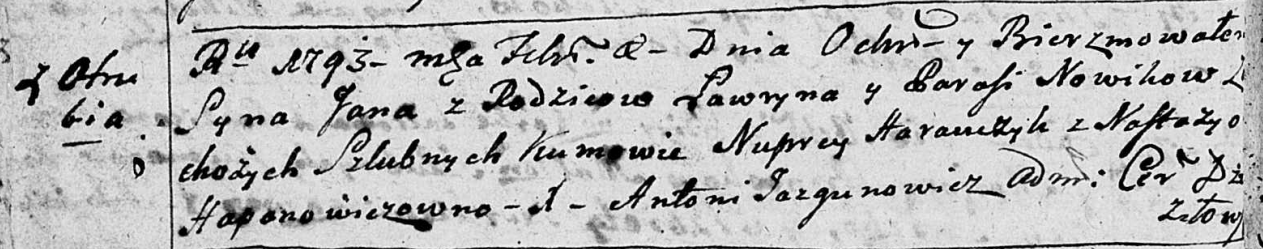 z Otru
bia
Ru 1793 – mỹa Febr. 8 – Dnia Ochr – y Bierzmowałem
Syna Jana z Rodzicow Ławryna y Parasi Nowikow
chożych Szlubnych Kumowie Nuprey Harauczyk z Nastazyo
Haponowiczowno – A – Antoni Jazgunowicz Adm: Cer Dzi
złow